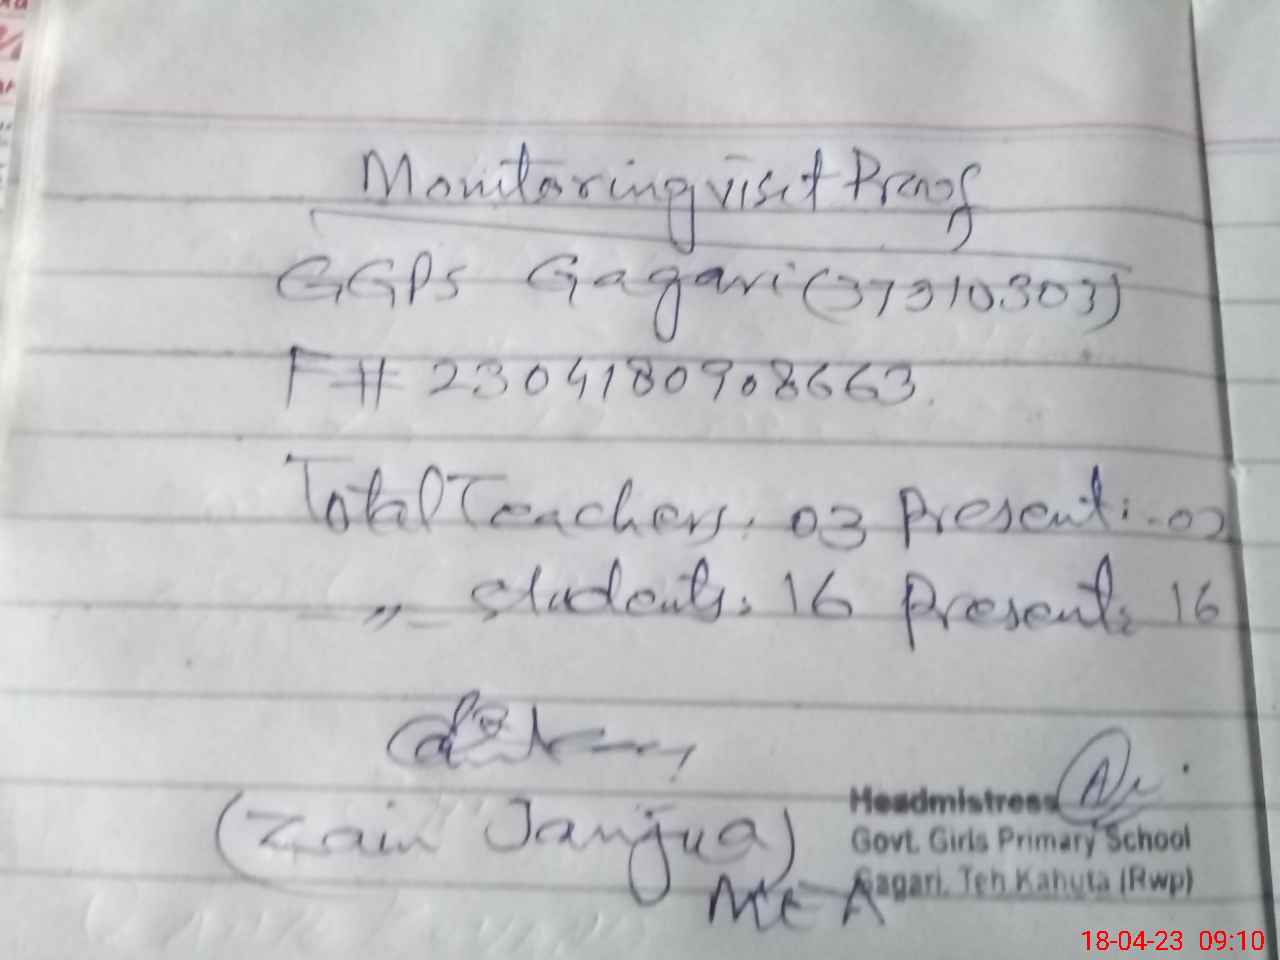 Monitoring visit Proof
GGPS Gagari (37310303)
F# 2304180908663.
Total Teachers: 03 Present: 02
〃 Students: 16 Present: 16
(Zain Janjua)
MEA
Headmistress
Govt. Girls Primary School
Gagari, Teh Kahuta (Rwp)
18-04-23 09:10